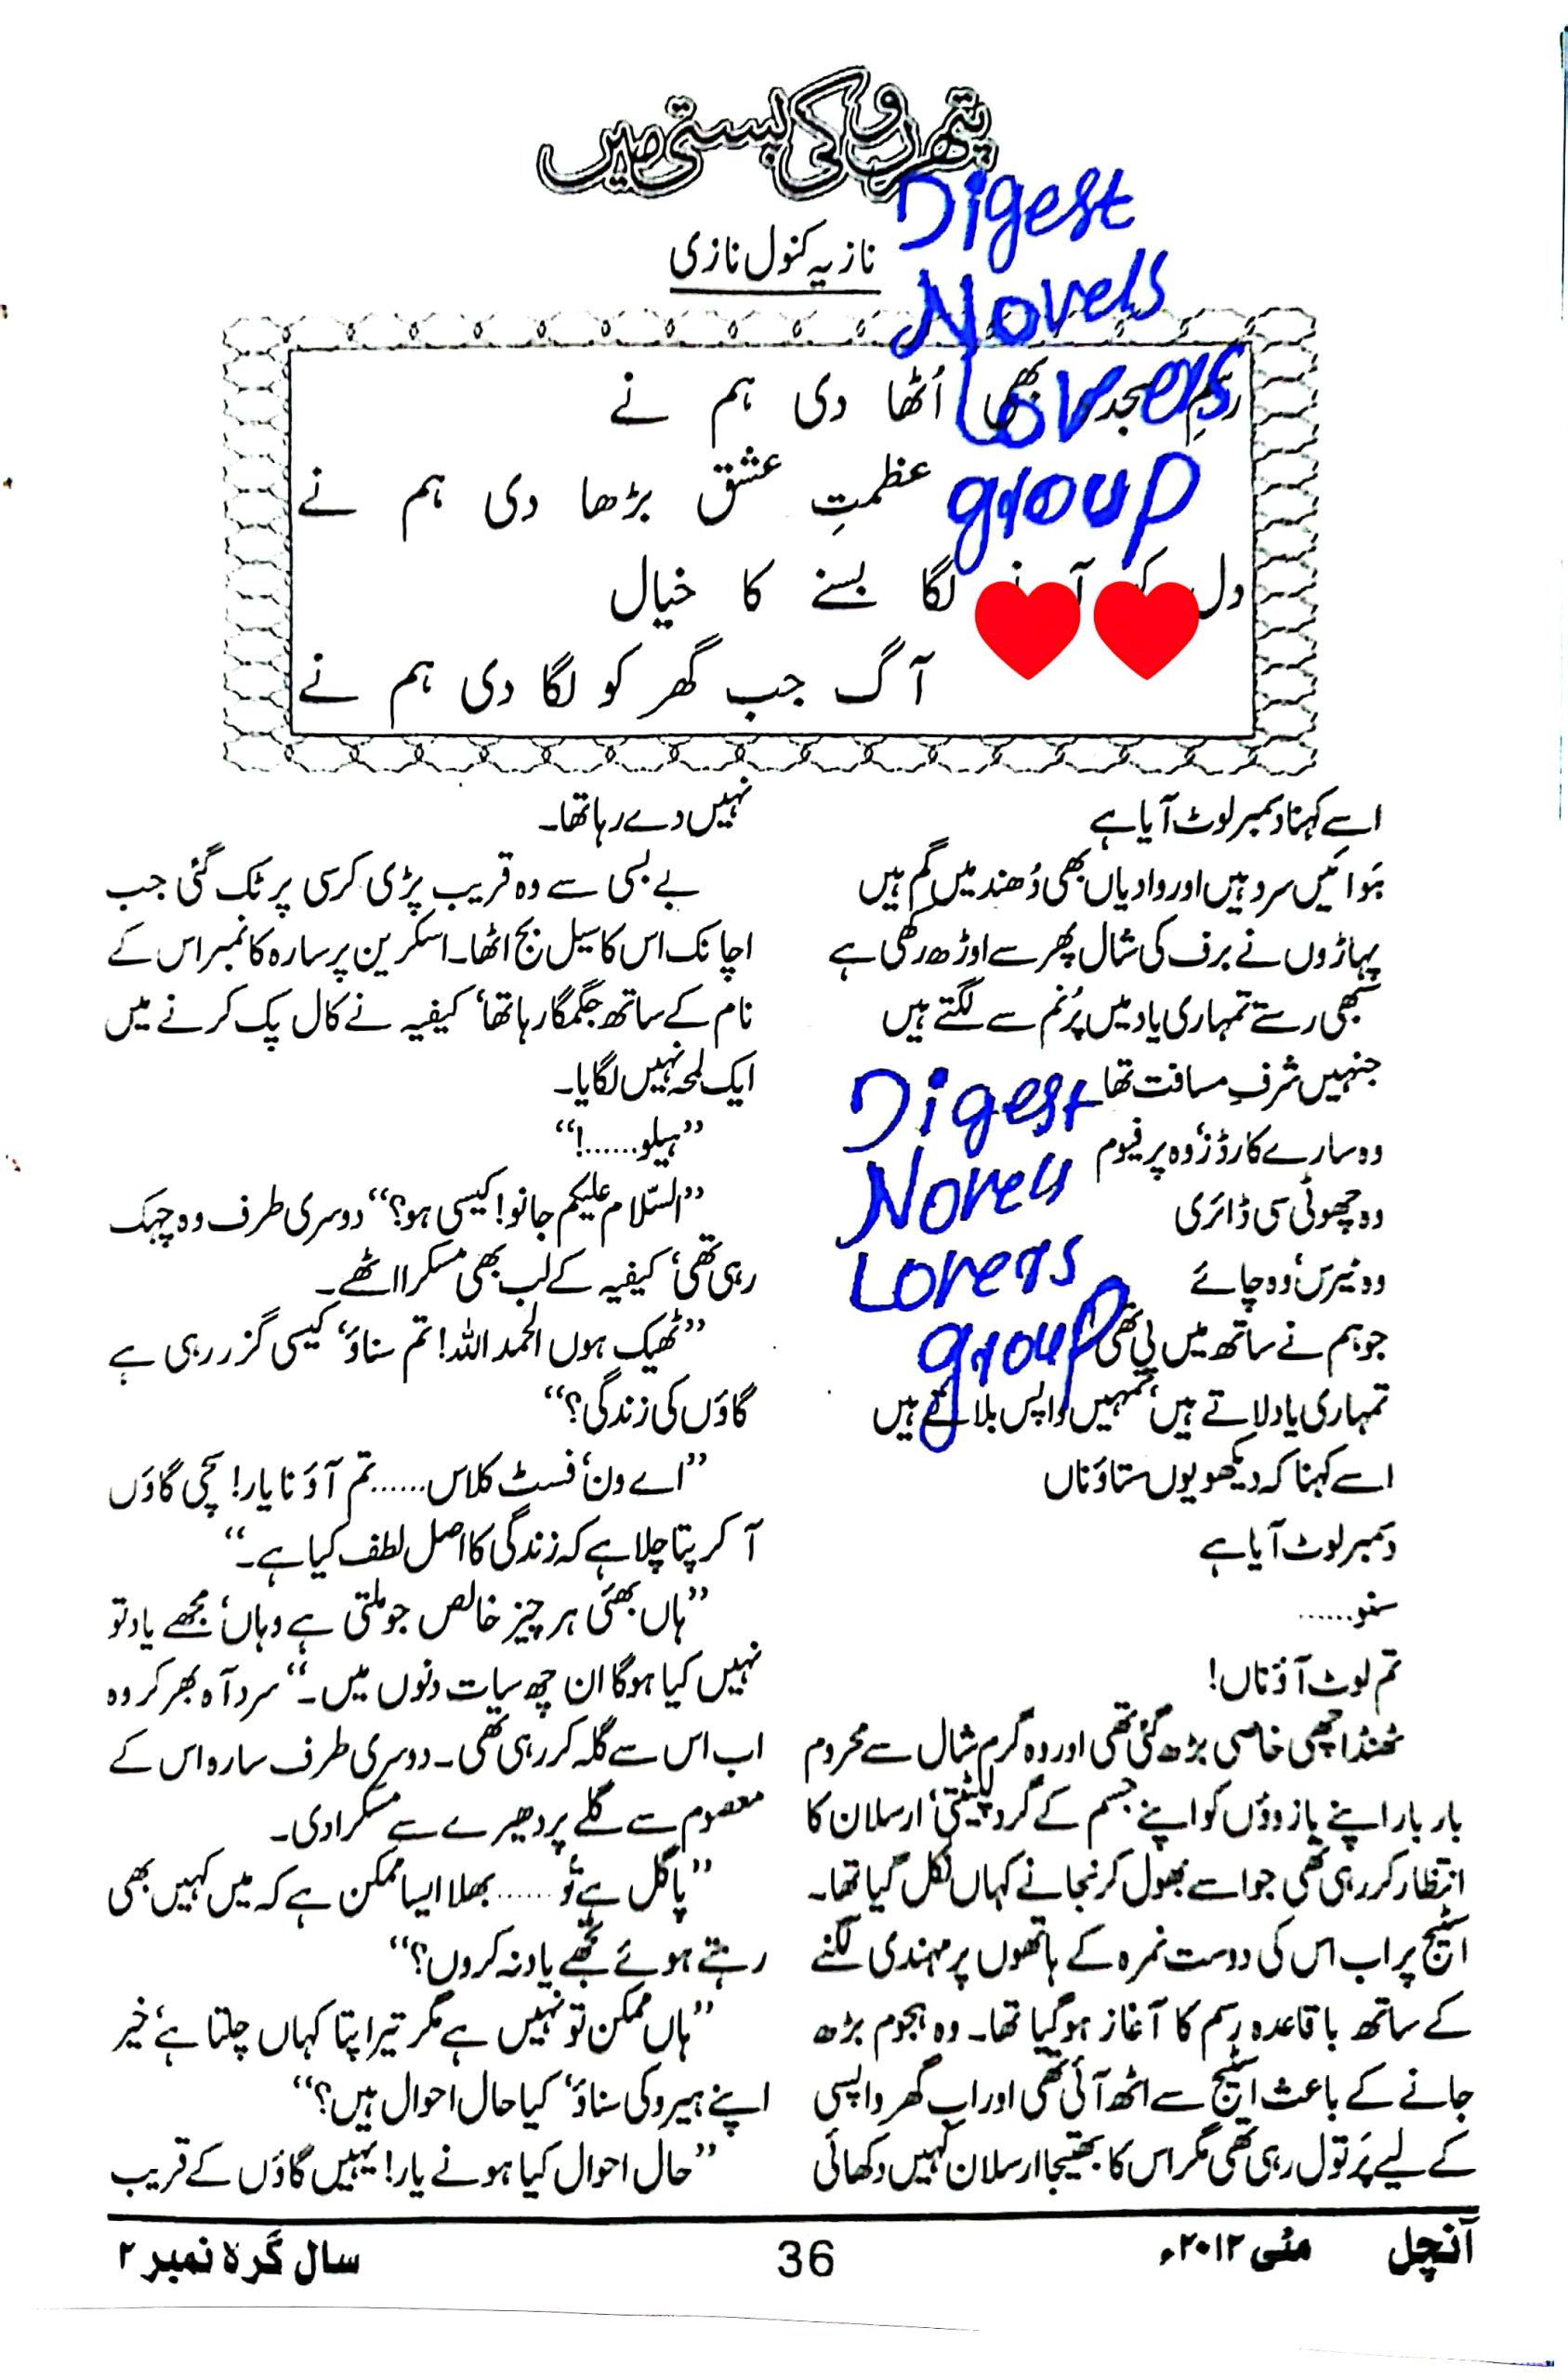 پتھروں کی بستی میں
نازیہ کنول نازی
Digest
Novels
Lovers
group
رسمِ سجدہ بھی اُٹھا دی ہم نے
عظمتِ عشق بڑھا دی ہم نے
دل آنے لگا بسنے کا خیال
آگ جب گھر کو لگا دی ہم نے
اسے کہنا دسمبر لوٹ آیا ہے
ہَوائیں سرد ہیں اور وادیاں بھی دُھند میں گم ہیں
پہاڑوں نے برف کی شال پھر سے اوڑھ رکھی ہے
سبھی رستے تمہاری یاد میں پُرنم سے لگتے ہیں
جنہیں شرفِ مسافت تھا
وہ سارے کارڈز، وہ پرفیوم
وہ چھوٹی سی ڈائری
وہ ٹیرس، وہ چائے
جو ہم نے ساتھ میں پی تھی
تمہاری یاد لاتے ہیں، تمہیں واپس بلاتے ہیں
اسے کہنا کہ دیکھو یوں ستاؤ ناں
دسمبر لوٹ آیا ہے
سنو......
تم لوٹ آؤ ناں!
Digest
Novels
Lovers
group
ٹھنڈ اچھی خاصی بڑھ گئی تھی اور وہ گرم شال سے محروم
بار بار اپنے بازوؤں کو اپنے جسم کے گرد لپیٹتی، ارسلان کا
انتظار کر رہی تھی جو اسے بھول کر نجانے کہاں نکل گیا تھا۔
اسٹیج پر اب اس کی دوست نمرہ کے ہاتھوں پر مہندی لگنے
کے ساتھ باقاعدہ رسم کا آغاز ہو گیا تھا۔ وہ ہجوم بڑھ
جانے کے باعث اسٹیج سے اٹھ آئی تھی اور اب گھر واپسی
کے لیے پَر تول رہی تھی مگر اس کا بھتیجا ارسلان کہیں دکھائی
نہیں دے رہا تھا۔
بے بسی سے وہ قریب پڑی کرسی پر ٹک گئی جب
اچانک اس کا سیل بج اٹھا۔ اسکرین پر سارہ کا نمبر اس کے
نام کے ساتھ جگمگا رہا تھا، کیفیہ نے کال پک کرنے میں
ایک لمحہ نہیں لگایا۔
”ہیلو......!“
”السّلام علیکم جانو! کیسی ہو؟“ دوسری طرف وہ چہک
رہی تھی، کیفیہ کے لب بھی مسکرا اٹھے۔
”ٹھیک ہوں الحمد اللہ! تم سناؤ، کیسی گزر رہی ہے
گاؤں کی زندگی؟“
”اے ون، فسٹ کلاس...... تم آؤ نا یار! سچی گاؤں
آ کر پتا چلا ہے کہ زندگی کا اصل لطف کیا ہے۔“
”ہاں بھئی ہر چیز خالص جو ملتی ہے وہاں، مجھے یاد تو
نہیں کیا ہوگا ان چھ سات دنوں میں۔“ سرد آہ بھر کر وہ
اب اس سے گلہ کر رہی تھی۔ دوسری طرف سارہ اس کے
معصوم سے گلے پر دھیرے سے مسکرا دی۔
”پاگل ہے تُو...... بھلا ایسا ممکن ہے کہ میں کہیں بھی
رہتے ہوئے تجھے یاد نہ کروں؟“
”ہاں ممکن تو نہیں ہے مگر تیرا پتا کہاں چلتا ہے، خیر
اپنے ہیرو کی سناؤ، کیا حال احوال ہیں؟“
”حال احوال کیا ہونے یار! یہیں گاؤں کے قریب
آنچل مئی ۲۰۱۲ء 36 سال گرہ نمبر ۲